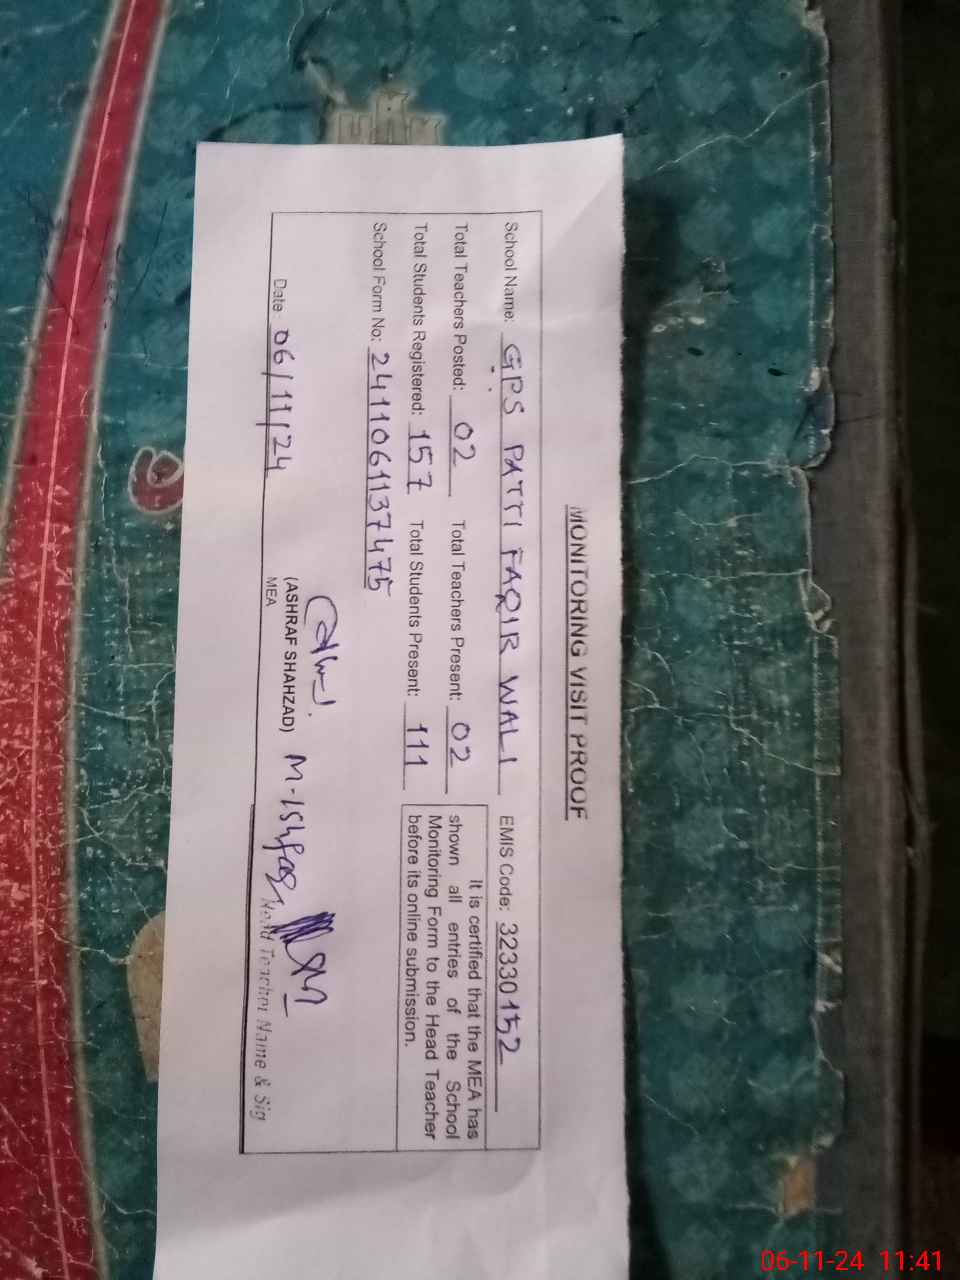 MONITORING VISIT PROOF
School Name: GPS PATTI FAQIR WALI EMIS Code: 32330152
Total Teachers Posted: 02 Total Teachers Present: 02
Total Students Registered: 157 Total Students Present: 111
School Form No: 2411061137475
It is certified that the MEA has
shown all entries of the School
Monitoring Form to the Head Teacher
before its online submission.
Date: 06/11/24
(ASHRAF SHAHZAD)
MEA
M-Ishfaq
Head Teacher Name & Sig
06-11-24 11:41